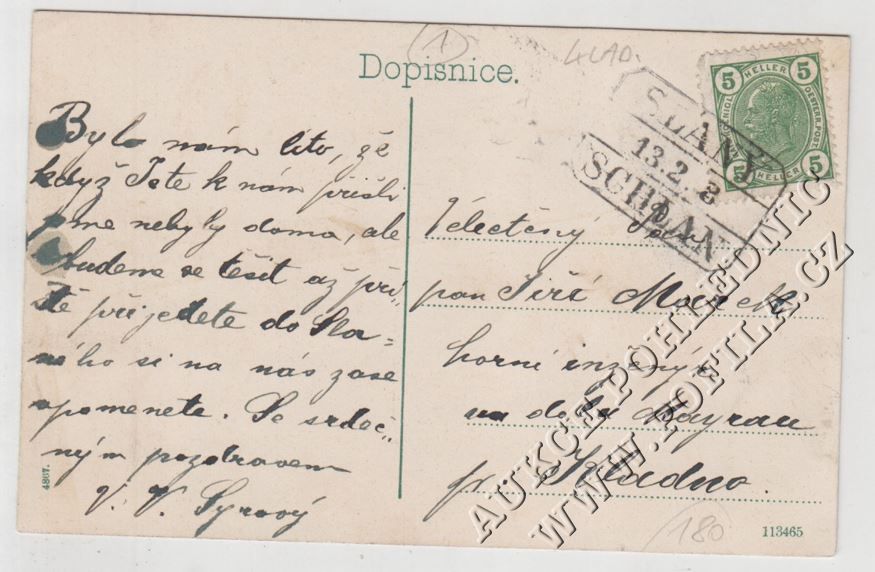 1
KLAD.
Dopisnice.
5 HELLER 5
5 HELLER 5
SLANÝ
13.2. 8
SCHLAN
Bylo nám líto, že
když Jste k nám přišli
jsme nebyly doma, ale
budeme se těšit až příš-
tě přijedete do Sla-
ného si na nás zase
vpomenete. Se srdeč-
ným pozdravem
V. V. Syrový
Velectěný
pan Jiří
horní inženýr
na dole Mayrau
pr. Kladno.
4867.
180
113465
AUKCE POHLEDNIC
WWW.POFILA.CZ